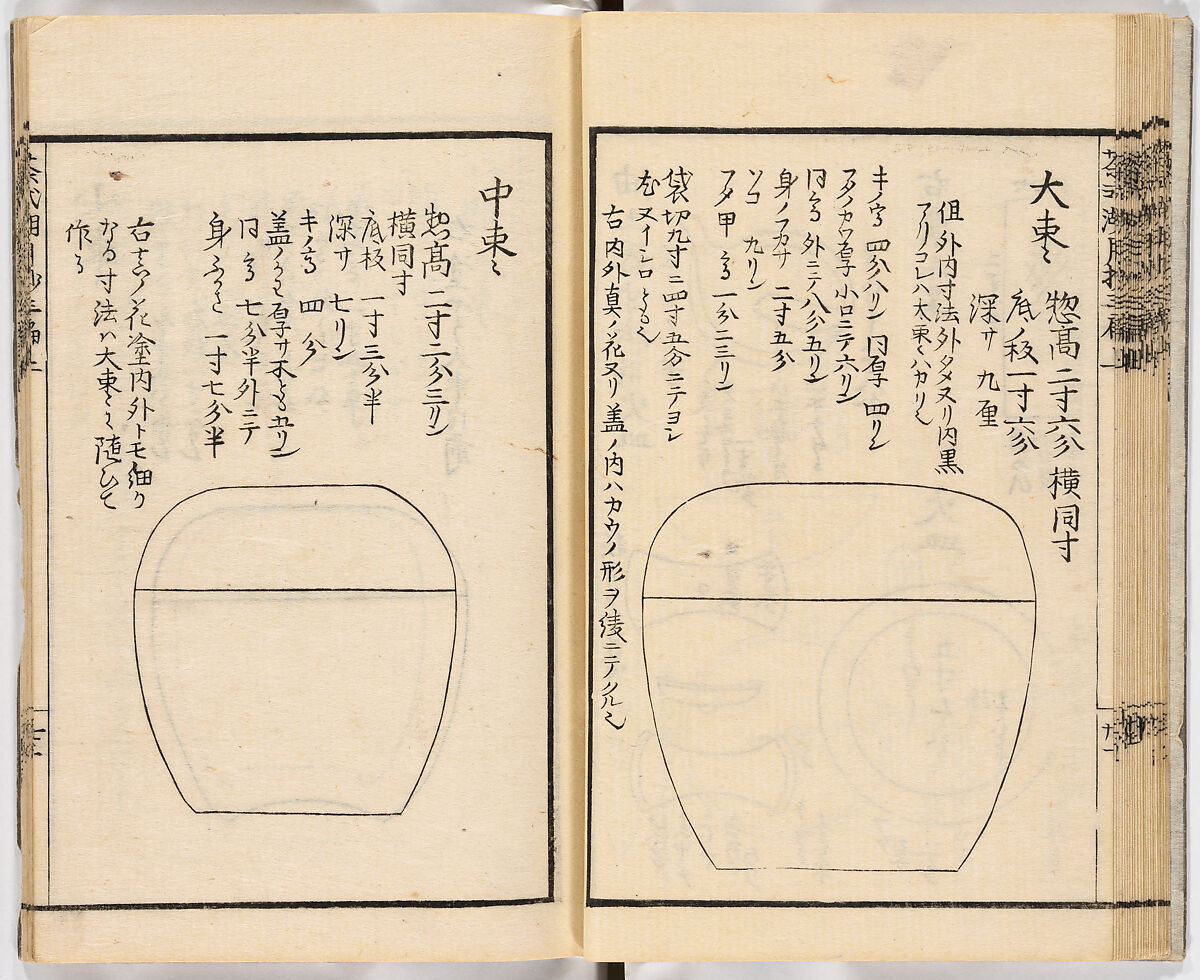 大棗
惣高二寸六分 横同寸
底ノ板一寸六分
深サ 九厘
但外内寸法外タメヌリ内黒
アリコレハ大棗ハカリ也
キノ高 四分八リン 同厚 四リン
フタノカウ厚小口ニテ六リン
同高 外ニテ八分五リン
身ノフカサ 二寸五分
ソコ 九リン
フタ甲高一分二三リン
袋切九寸ニ四寸五分ニテヨシ
右内外真ノ花ヌリ盖ノ内ハカウノ形ヲ綾ニテクルミ
中棗
惣高二寸二分三リン
横同寸
底板 一寸三分半
深サ 七リン
キノ高 四分
盖ノかわ厚サ木とも五リン
同高 七分半外ニテ
身ふかさ 一寸七分半
右真ノ花塗内外トモ細リ
なる寸法ハ大棗に随ひて
作る